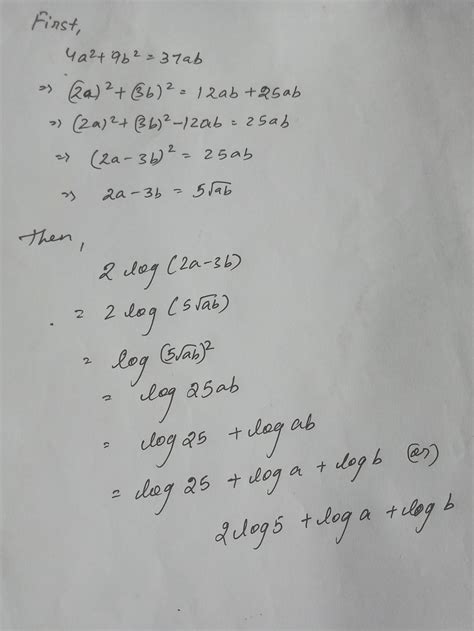 First,
4a² + 9b² = 37ab
⇒ (2a)² + (3b)² = 12ab + 25ab
⇒ (2a)² + (3b)² - 12ab = 25ab
⇒ (2a - 3b)² = 25ab
⇒ 2a - 3b = 5√ab
Then,
2 log (2a - 3b)
= 2 log (5√ab)
= log (5√ab)²
= log 25ab
= log 25 + log ab
= log 25 + log a + log b (or)
2 log 5 + log a + log b